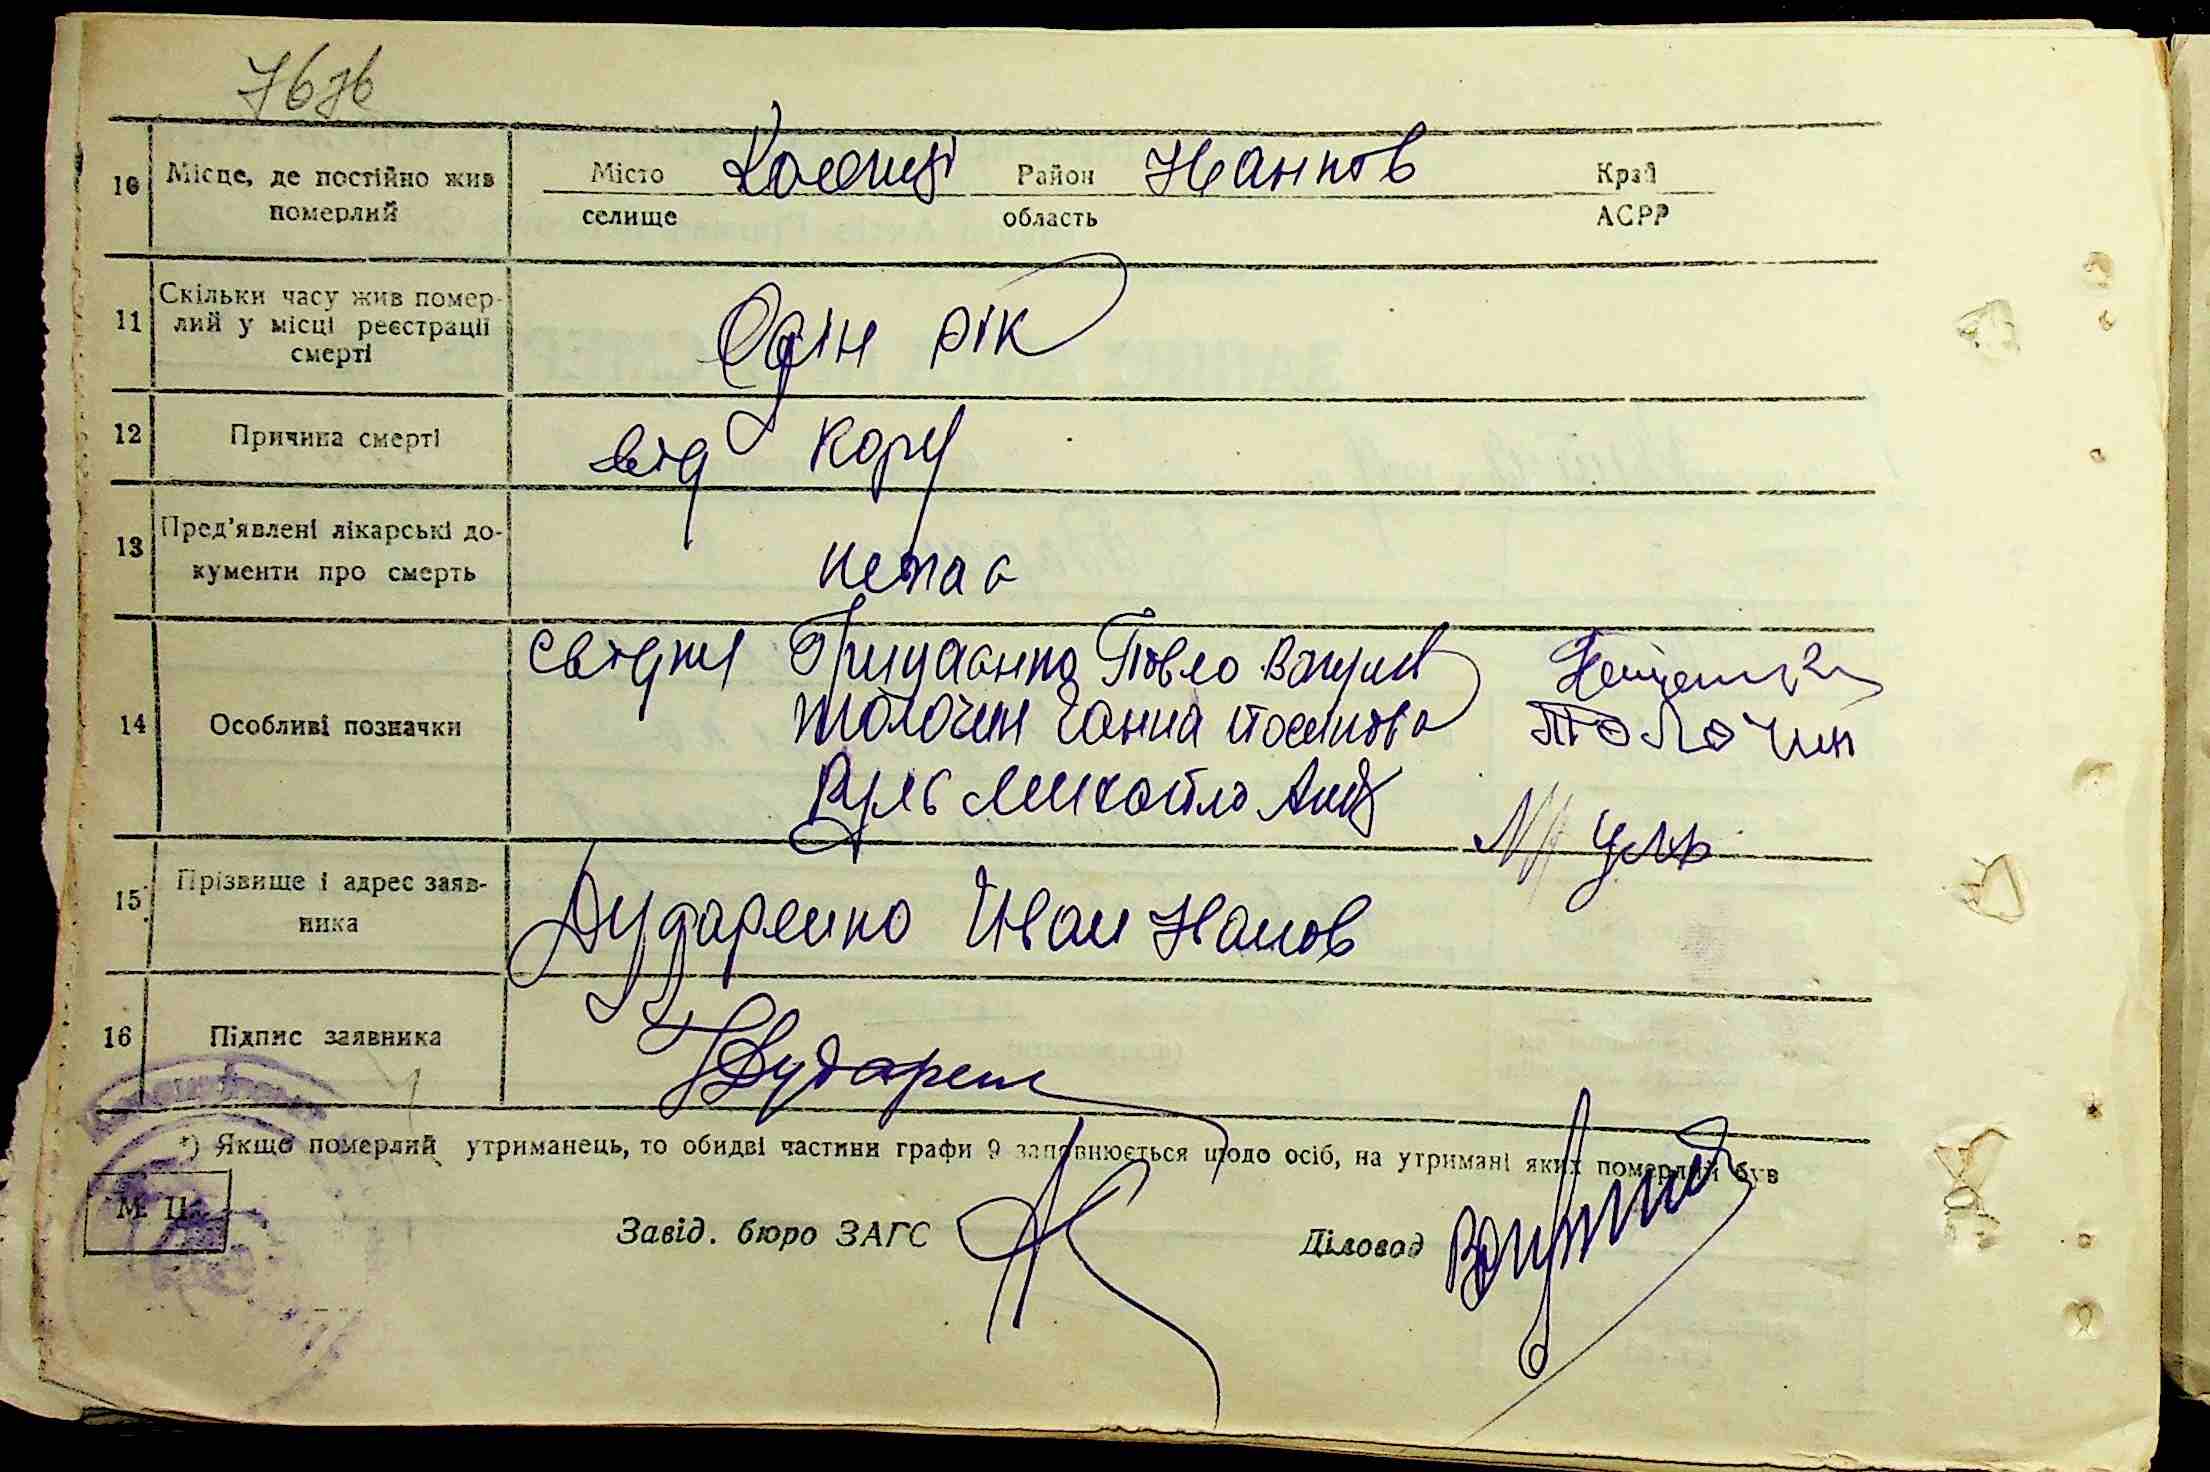 7676
10 Місце, де постійно жив померлий
Місто селище
Район Іванков область
Край АСРР
11 Скільки часу жив помер-
лий у місці реєстрації
смерті
Одін рік
12 Причина смерті
від кору
13 Пред'явлені лікарські до-
кументи про смерть
немає
14 Особливі позначки
свідки Грицаенко Павло
Толочин Ганна
Михайло
Толочин
15 Прізвище і адрес заяв-
ника
Дударенко Иван Иванов
16 Підпис заявника
Дударен
*) Якщо померлий утриманець, то обидві частини графи 9 заповнюється щодо осіб, на утримані яких померлий був
М. П.
Завід. бюро ЗАГС
Діловод